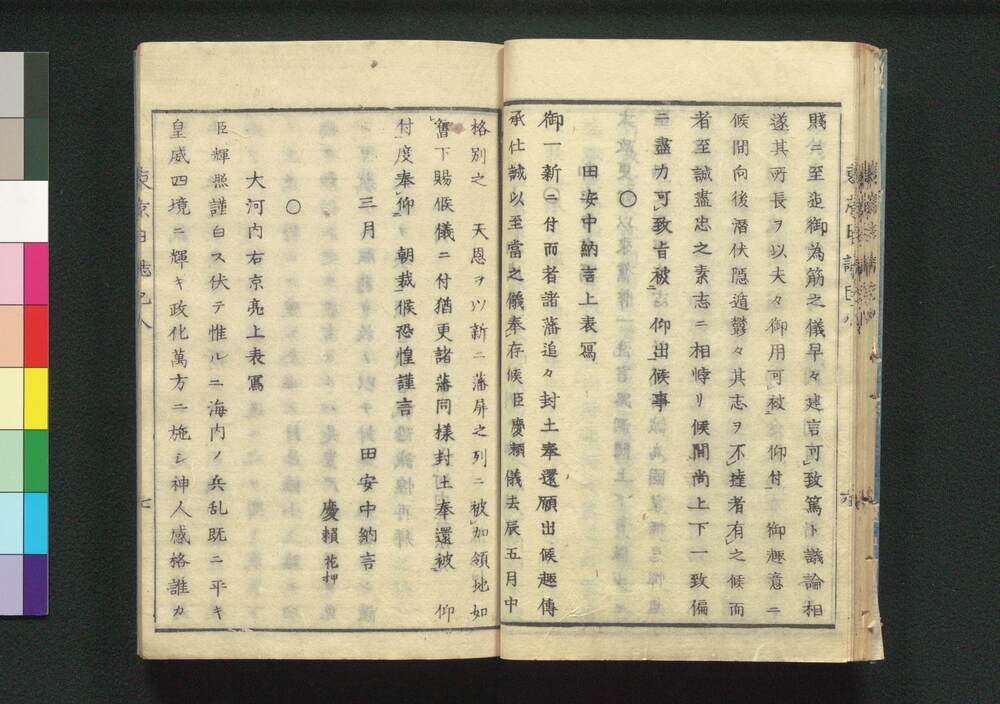 賤ニ至迄御為筋之儀早々建言可致篤ト議論相
遂其所長ヲ以夫々御用可被 仰付 御趣意ニ
候間向後潜伏隠遁鬱々其志ヲ不達者有之候而
者至誠盡忠之素志ニ相悖リ候間尚上下一致偏
ニ盡力可致旨被 仰出候事
○
田安中納言上表冩
御一新ニ付而者諸藩追々封土奉還願出候趣傳
承仕誠以至當之儀奉存候臣慶頼儀去辰五月中
格別之 天恩ヲ以新ニ藩屏之列ニ被加領地如
舊下賜候儀ニ付猶更諸藩同様封土奉還被 仰
付度奉仰 朝裁候恐惶謹言
三月 田安中納言
慶頼 花押
○
大河内右京亮上表冩
臣輝照謹白ス伏テ惟ルニ海内ノ兵乱既ニ平キ
皇威四境ニ輝キ政化萬方ニ施シ神人感格誰カ
東京日誌巳八
七
六